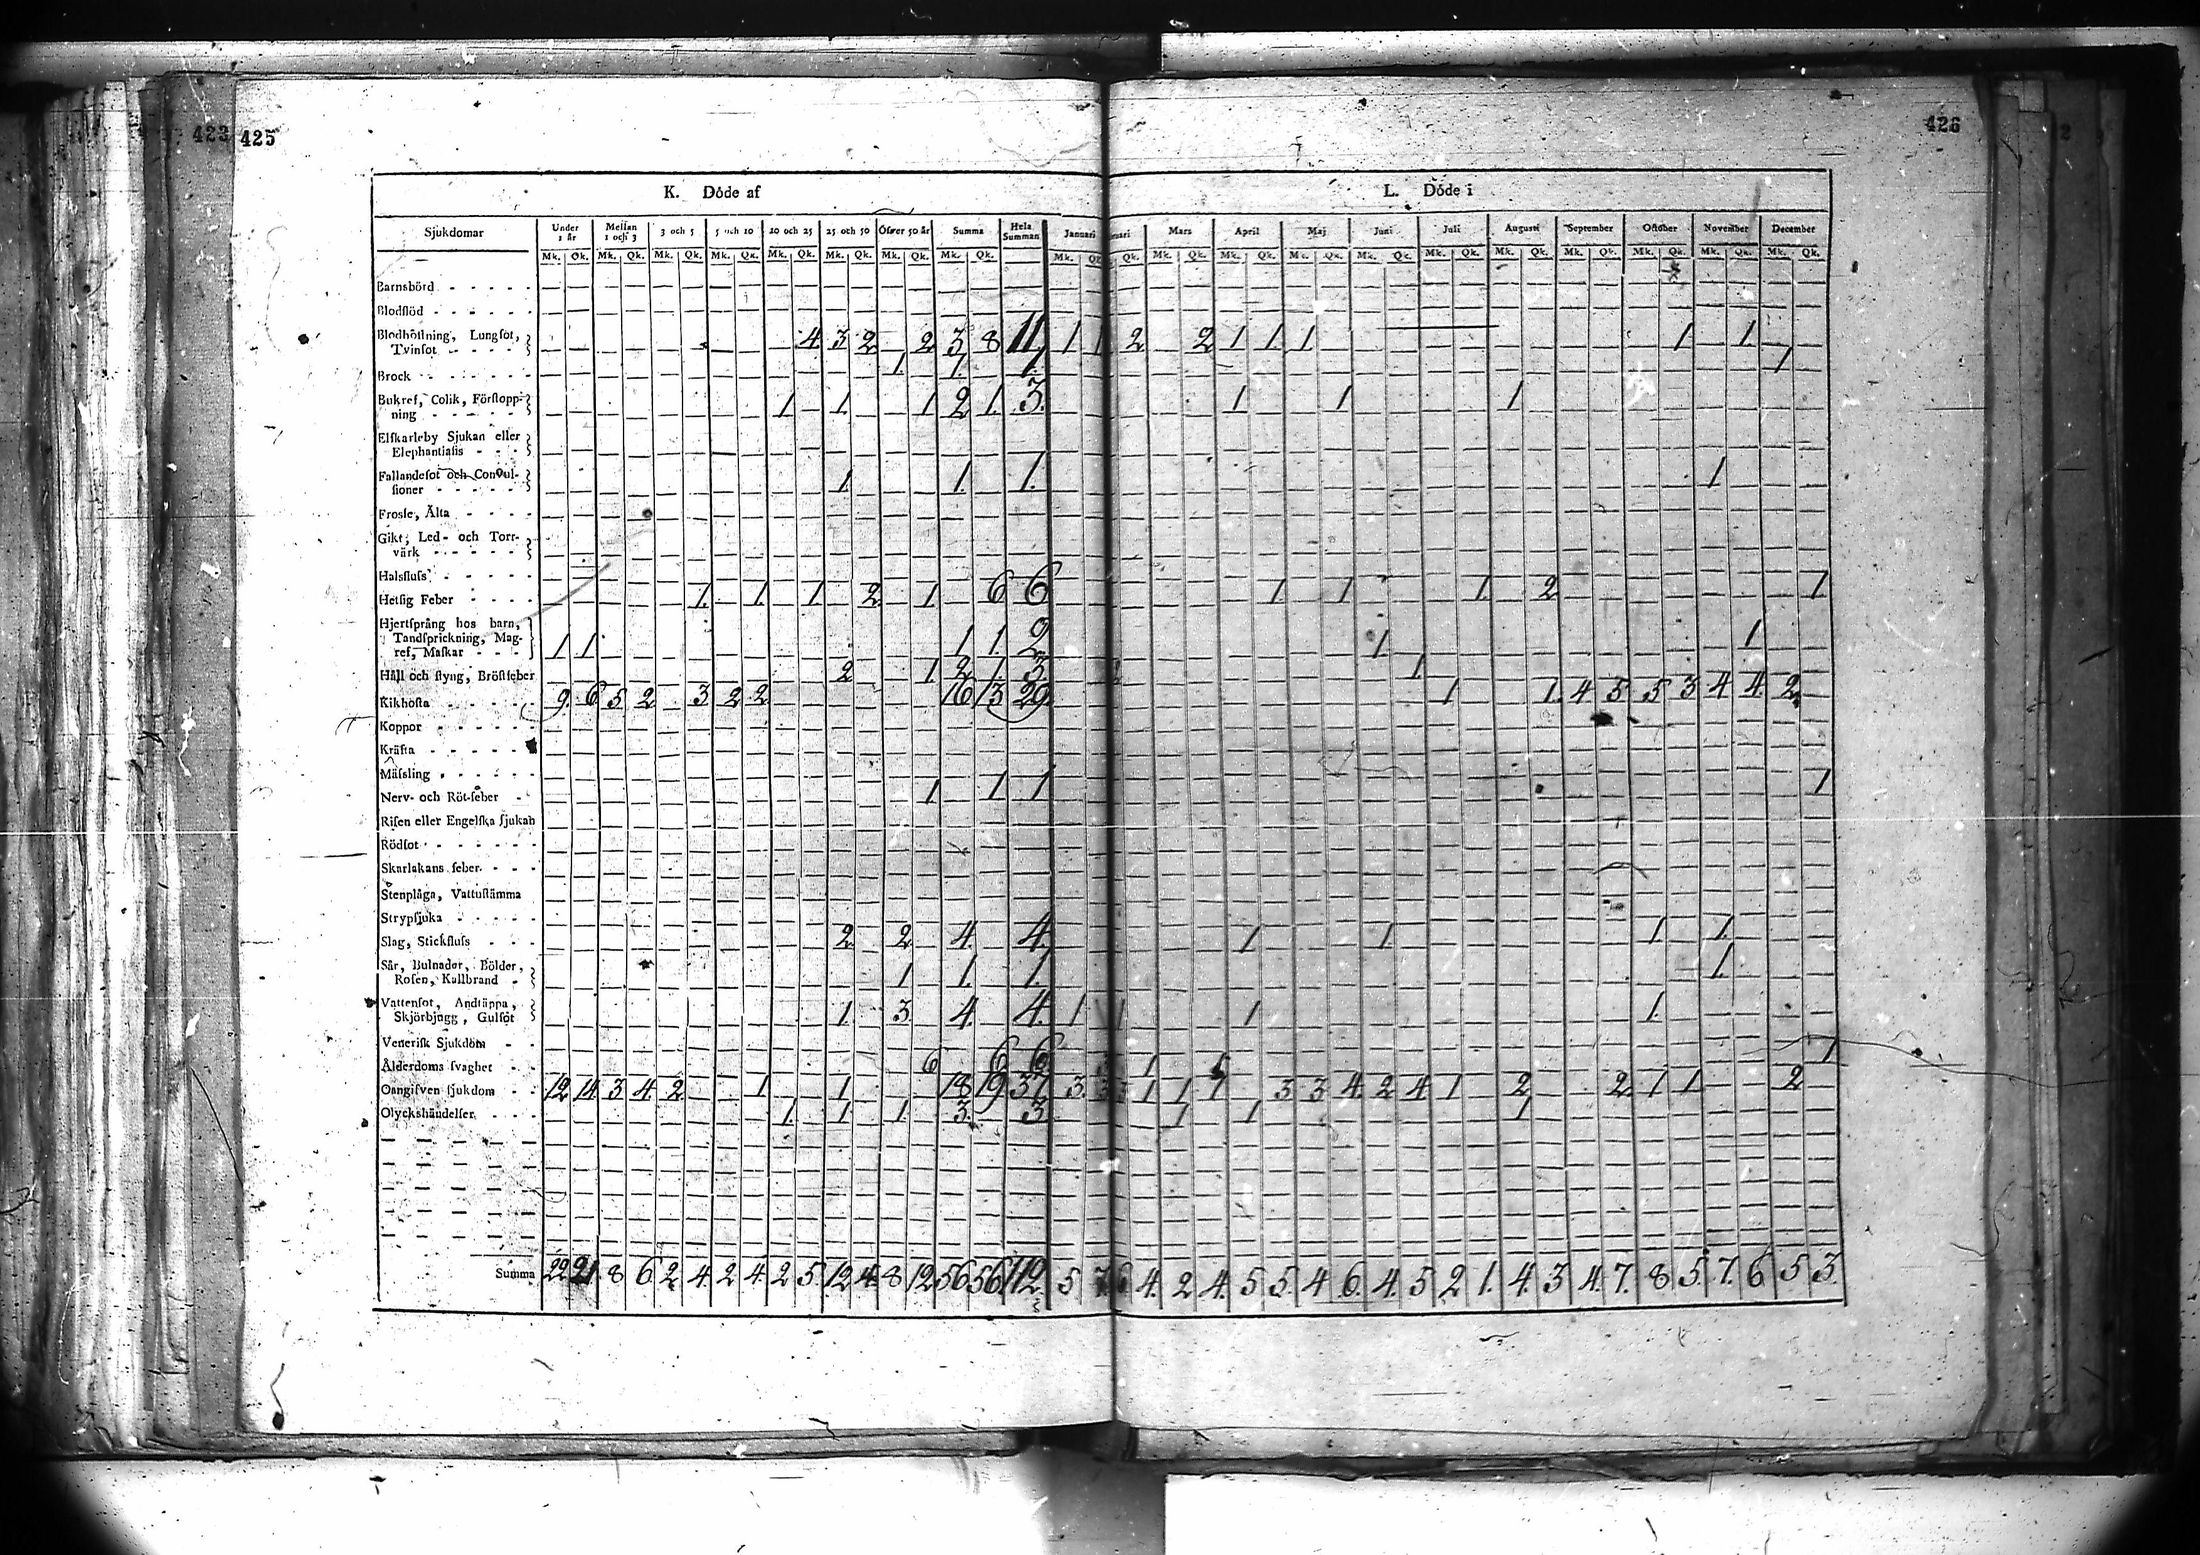 423 425 426
K. Döde af L. Döde i
Sjukdomar Under 1 år Mellan 1 och 3 3 och 5 5 och 10 10 och 25 25 och 50 Öfver 50 år Summa Hela Summan Januari Mars April Maj Juni Juli Augusti September October November December
Mk. Qk. Mk. Qk. Mk. Qk. Mk. Qk. Mk. Qk. Mk. Qk. Mk. Qk. Mk. Qk. Mk. Qk. Mk. Qk. Mk. Qk. Mk. Qk. Mk. Qk. Mk. Qk. Mk. Qk. Mk. Qk. Mk. Qk. Mk. Qk. Mk. Qk. Mk. Qk.
Barnsbörd
Blodflöd
Blodhostning, Lungsot,
Tvinsot 4 3 2 2 3 8 11 1 1 2 2 1 1 1 1 1
Brock 1 1. 1. 1
Bukref, Colik, Förstopp-
ning 1 1. 1 2 1. 3. 1 1 1
Elfkarleby Sjukan eller
Elephantiasis
Fallandesot och Convul-
sioner 1 1. 1. 1
Frosse, Älta
Gikt, Led- och Torr-
värk
Halsfluss
Hetsig Feber 1. 1. 1 2 1. 6 6 1. 1 1. 2 1
Hjertsprång hos barn,
Tandsprickning, Mag-
ref, Maskar 1 1 1 1. 2 1 1
Håll och styng, Bröstfeber 2 1 2 1. 3 1
Kikhosta 9. 6 5 2 3 2 2 16 13 29. 1 1. 4 5 5 3 4 4 2
Koppor
Kräfta
Mässling
Nerv- och Röt-feber 1 1 1 1
Risen eller Engelska sjukan
Rödsot
Skarlakans feber
Stenplåga, Vattustämma
Strypsjuka
Slag, Stickfluss 2 2 4. 4. 1 1 1. 1.
Sår, Bulnader, Bölder,
Rosen, Kallbrand 1 1. 1. 1
Vattensot, Andtäppa,
Skjörbjugg, Gulsot 1. 3. 4. 4. 1 1 1 1.
Venerisk Sjukdom
Ålderdoms svaghet 6 6 6 1 1
Oangifven sjukdom 12 14 3 4 2 1 1 18 19 37 3. 3 3 1 1 1 3 3 4 2 4 1 2 2 1 1 2
Olyckshändelser 1. 1 1 3. 3 1 1 1
Summa 22 21 8 6 2 4. 2 4. 2 5 12 4 8 12 56 56 112. 5 7 6 4. 2 4. 5 5. 4 6. 4. 5 2 1. 4. 3 4. 7. 8 5. 7. 6 5 3.